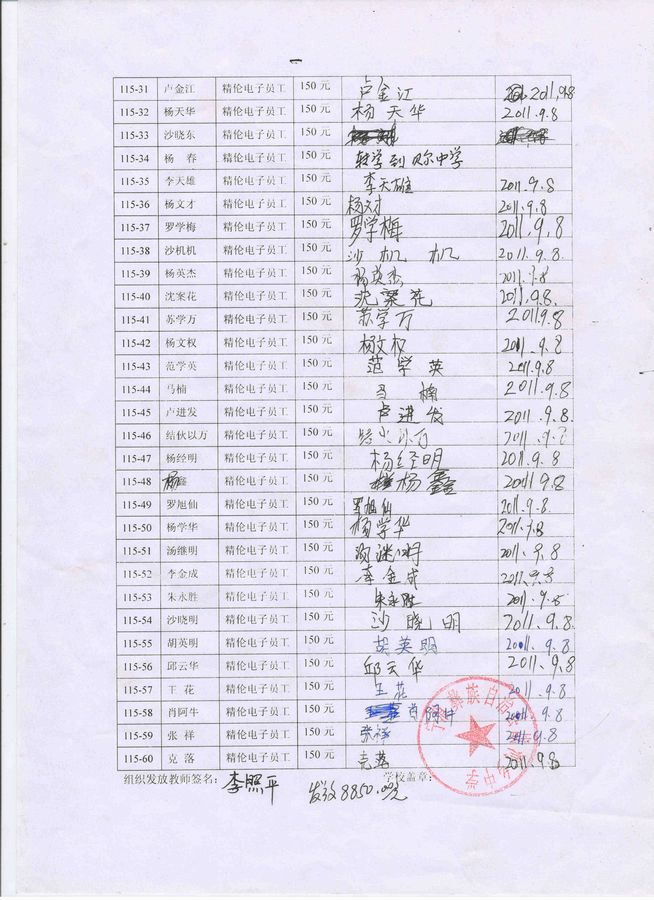 115-31 卢金江 精伦电子员工 150 元 卢金江 2011.9.8
115-32 杨天华 精伦电子员工 150 元 杨天华 2011.9.8
115-33 沙晓东 精伦电子员工 150 元
115-34 杨 春 精伦电子员工 150 元 转学到贝尔中学
115-35 李天雄 精伦电子员工 150 元 李天雄 2011.9.8
115-36 杨文才 精伦电子员工 150 元 杨文才 2011.9.8
115-37 罗学梅 精伦电子员工 150 元 罗学梅 2011.9.8
115-38 沙机机 精伦电子员工 150 元 沙机机 2011.9.8.
115-39 杨英杰 精伦电子员工 150 元 杨英杰 2011.9.8
115-40 沈案花 精伦电子员工 150 元 沈案花 2011.9.8.
115-41 苏学万 精伦电子员工 150 元 苏学万 2011.9.8
115-42 杨文权 精伦电子员工 150 元 杨文权 2011.9.8
115-43 范学英 精伦电子员工 150 元 范学英 2011.9.8
115-44 马楠 精伦电子员工 150 元 马楠 2011.9.8
115-45 卢进发 精伦电子员工 150 元 卢进发 2011.9.8.
115-46 结伙以万 精伦电子员工 150 元 2011.9.8
115-47 杨经明 精伦电子员工 150 元 杨经明 2011.9.8
115-48 杨鑫 精伦电子员工 150 元 杨鑫 2011.9.8
115-49 罗旭仙 精伦电子员工 150 元 罗旭仙 2011.9.8.
115-50 杨学华 精伦电子员工 150 元 杨学华 2011.9.8
115-51 汤继明 精伦电子员工 150 元 2011.9.8
115-52 李金成 精伦电子员工 150 元 李金成 2011.9.8
115-53 朱永胜 精伦电子员工 150 元 朱永胜 2011.9.8
115-54 沙晓明 精伦电子员工 150 元 沙晓明 2011.9.8.
115-55 胡英明 精伦电子员工 150 元 胡英明 2011.9.8.
115-56 邱云华 精伦电子员工 150 元 邱云华 2011.9.8.
115-57 王 花 精伦电子员工 150 元 王花 2011.9.8
115-58 肖阿牛 精伦电子员工 150 元 肖阿牛 2011.9.8
115-59 张 祥 精伦电子员工 150 元 张祥 2011.9.8
115-60 克 落 精伦电子员工 150 元 克落 2011.9.8
组织发放教师签名： 李照平 发放8850.00元 学校盖章：
彝族自 中学